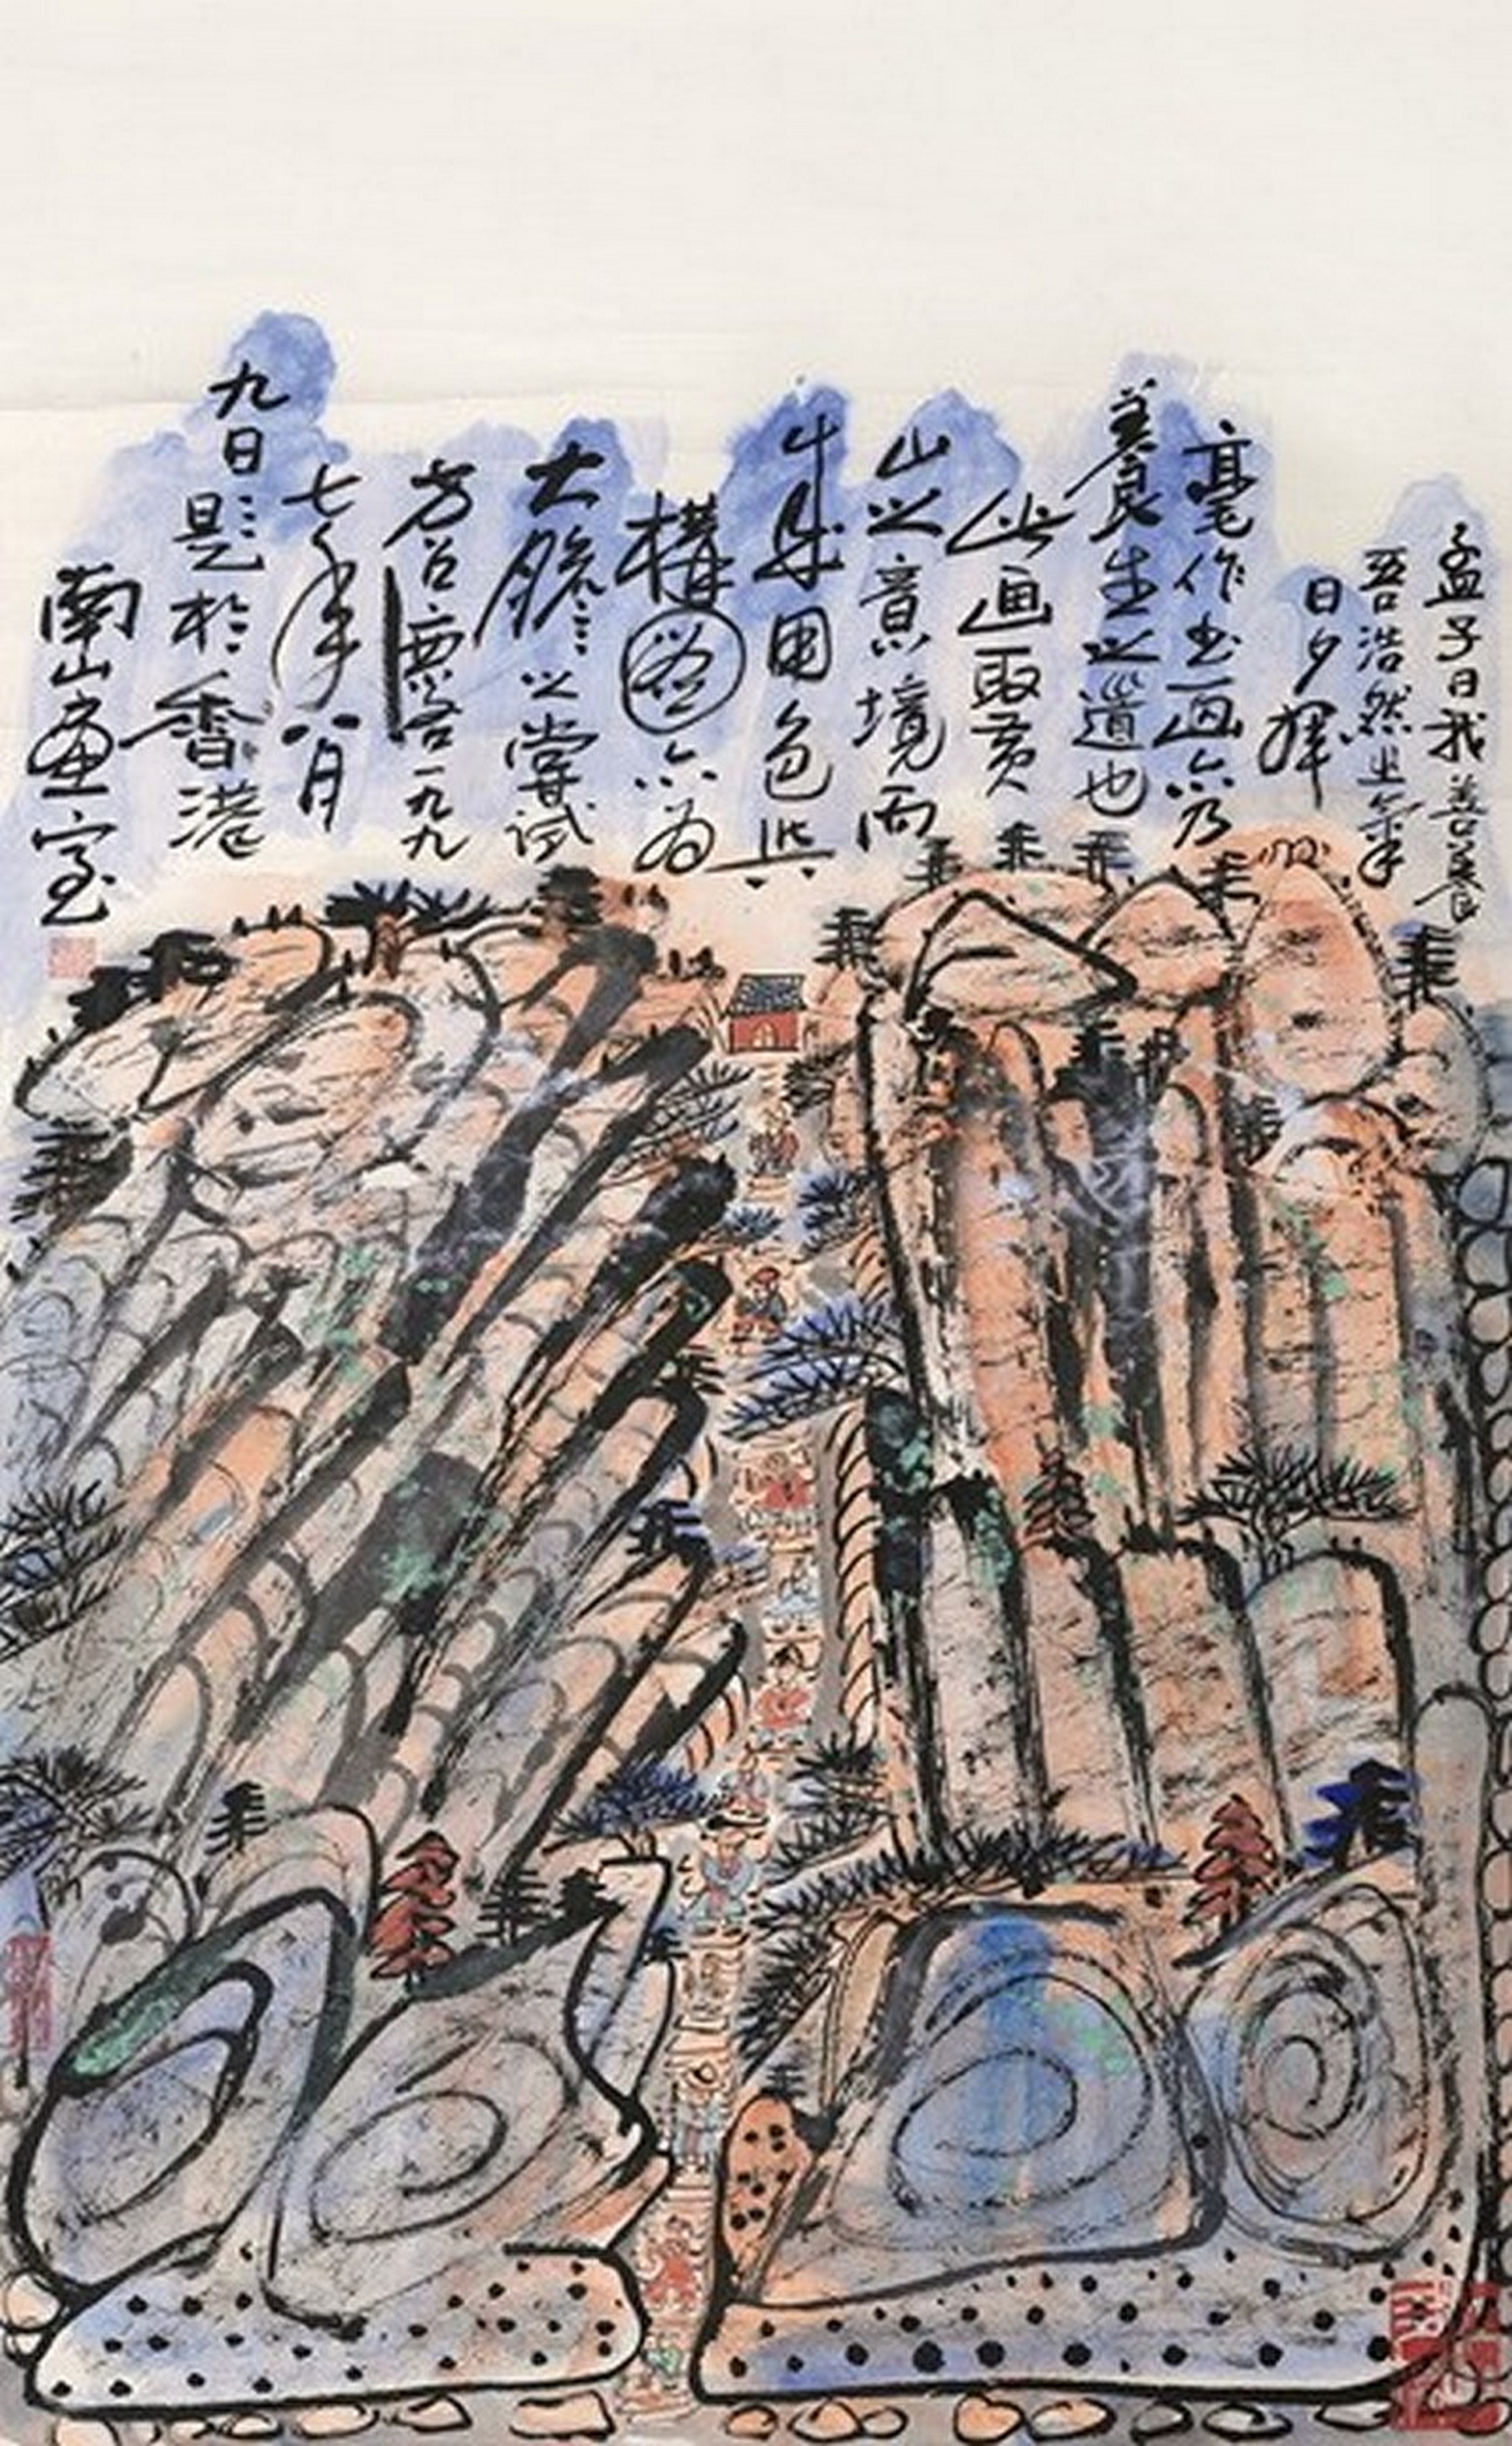 孟子曰我善養
吾浩然之氣
日夕揮
毫作書画亦乃
養生之道也
此画取黄
山之意境而
成圖色
構亦為
大膽之嘗試
方召麐一九九
七年八月
九日題於香港
南山画室